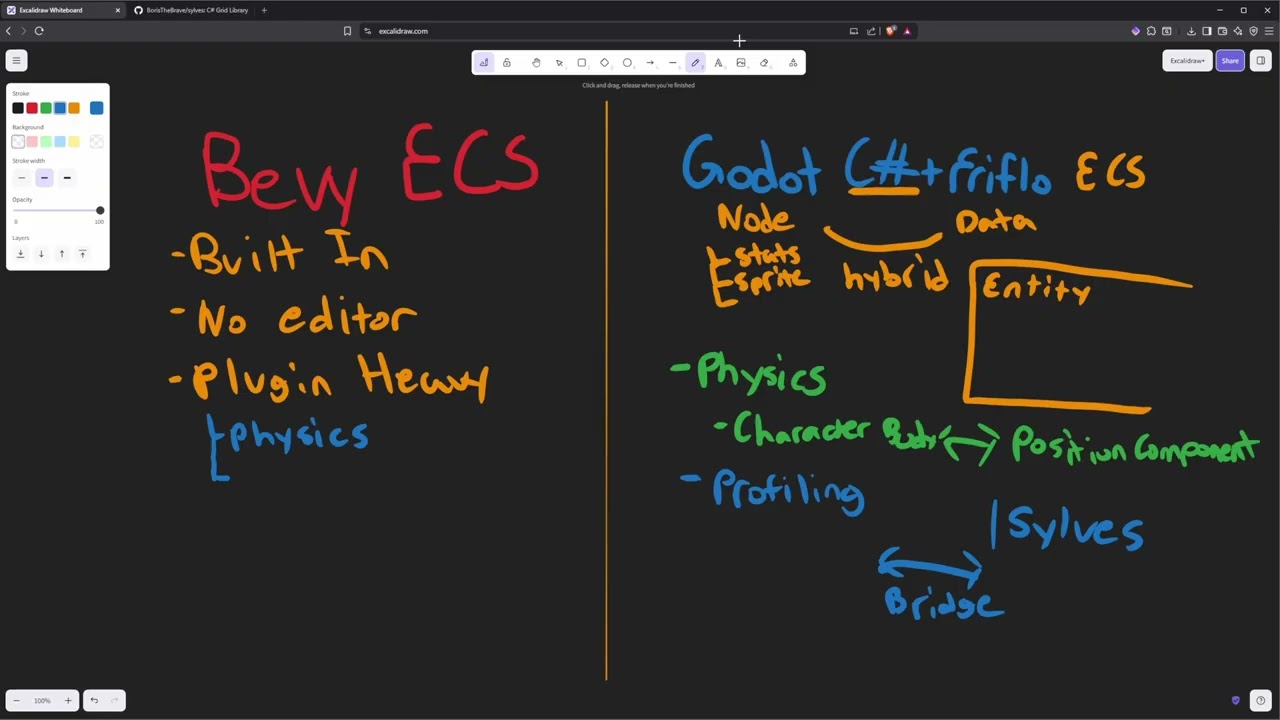 Excalidraw Whiteboard
BorisTheBrave/sylves: C# Grid Library
excalidraw.com
Click and drag, release when you're finished
Excalidraw+
Share
Stroke
Background
Stroke width
Opacity
0 100
Layers
Bevy ECS
- Built In
- No editor
- Plugin Heavy
physics
Godot C# + Friflo ECS
Node
Data
stats
sprite
hybrid
Entity
- Physics
- Character Body
Position Component
- Profiling
Sylves
Bridge
100%